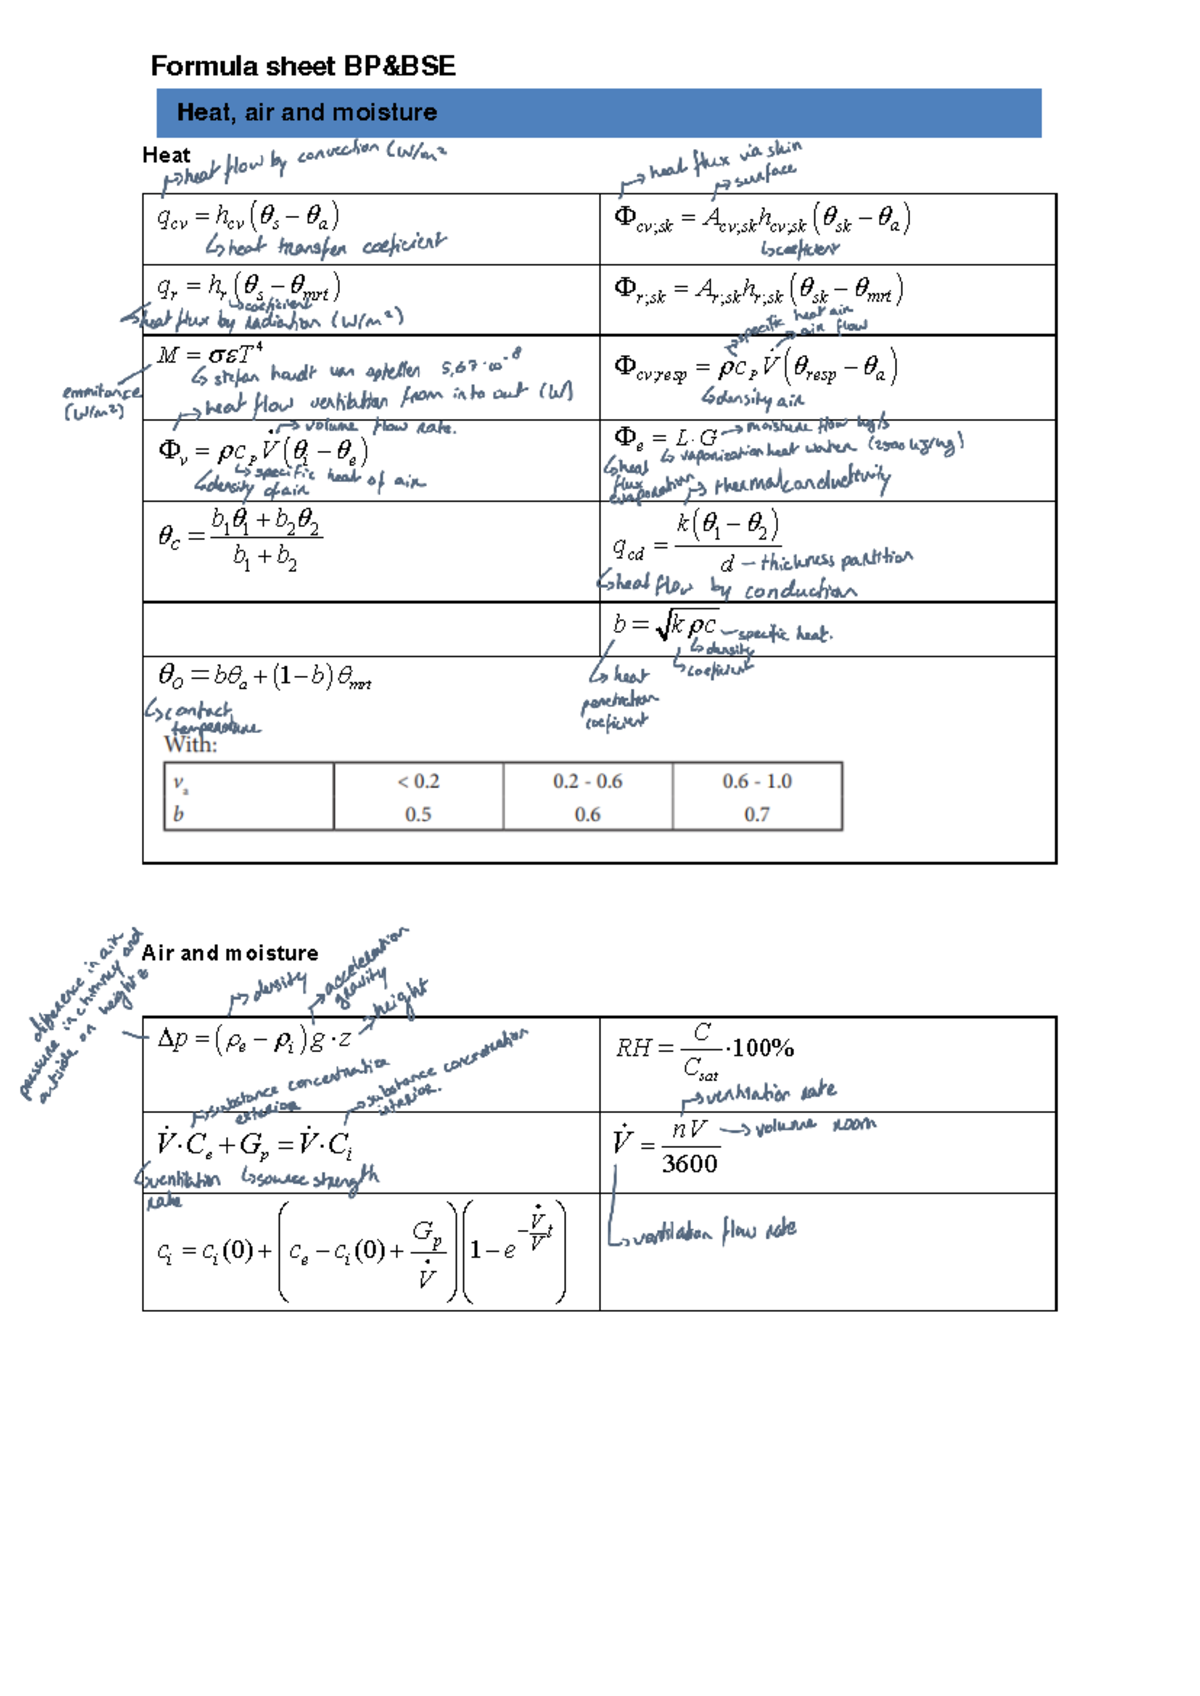 Formula sheet BP&BSE
Heat, air and moisture
Heat
↳heat flow by convection (W/m²
↳heat flux via skin
↳surface
q_cv = h_cv (θ_s − θ_a)
↳heat transfer coeficient
Φ_cv;sk = A_cv;sk h_cv;sk (θ_sk − θ_a)
↳coeficient
q_r = h_r (θ_s − θ_mrt)
↳coeficient
heat flux by radiation (W/m²)
Φ_r;sk = A_r;sk h_r;sk (θ_sk − θ_mrt)
↳specific heat air
→air flow
M = σεT⁴
↳ stefan 5,67·10⁻⁸
emmitance
(W/m²)
↳heat flow ventilation from in to out (W)
Φ_cv;resp = ρc_P V̇ (θ_resp − θ_a)
↳density air
→ volume flow rate.
Φ_v = ρc_P V̇ (θ_i − θ_e)
↳specific heat of air
↳density of air
Φ_e = L·G →moisture flow kg/s
↳ vaporization heat water (2500 kJ/kg)
↳heat
flux
evaporation
↳ thermal conductivity
θ_c = (b₁θ₁ + b₂θ₂) / (b₁ + b₂)
q_cd = k(θ₁ − θ₂) / d – thickness partition
↳heat flow by conduction
b = √(kρc) – specific heat.
↳density
↳coeficient
↳ heat
penetration
coeficient
θ_O = bθ_a + (1−b)θ_mrt
↳contact
temperature
With:
v_a < 0.2 0.2 - 0.6 0.6 - 1.0
b 0.5 0.6 0.7
Air and moisture
difference in air
pressure in chimney and
outside on height z
↳density
→acceleration
gravity
→height
Δp = (ρ_e − ρ_i) g · z
RH = C / C_sat · 100%
↳substance concentration
exterior
→substance concentration
interior.
↳ventilation rate
V̇·C_e + G_p = V̇·C_i
↳ventilation
rate
↳source strength
V̇ = nV / 3600
→ volume room
↳ventilation flow rate
c_i = c_i(0) + (c_e − c_i(0) + G_p / V̇)(1 − e^(−(V̇/V)t))